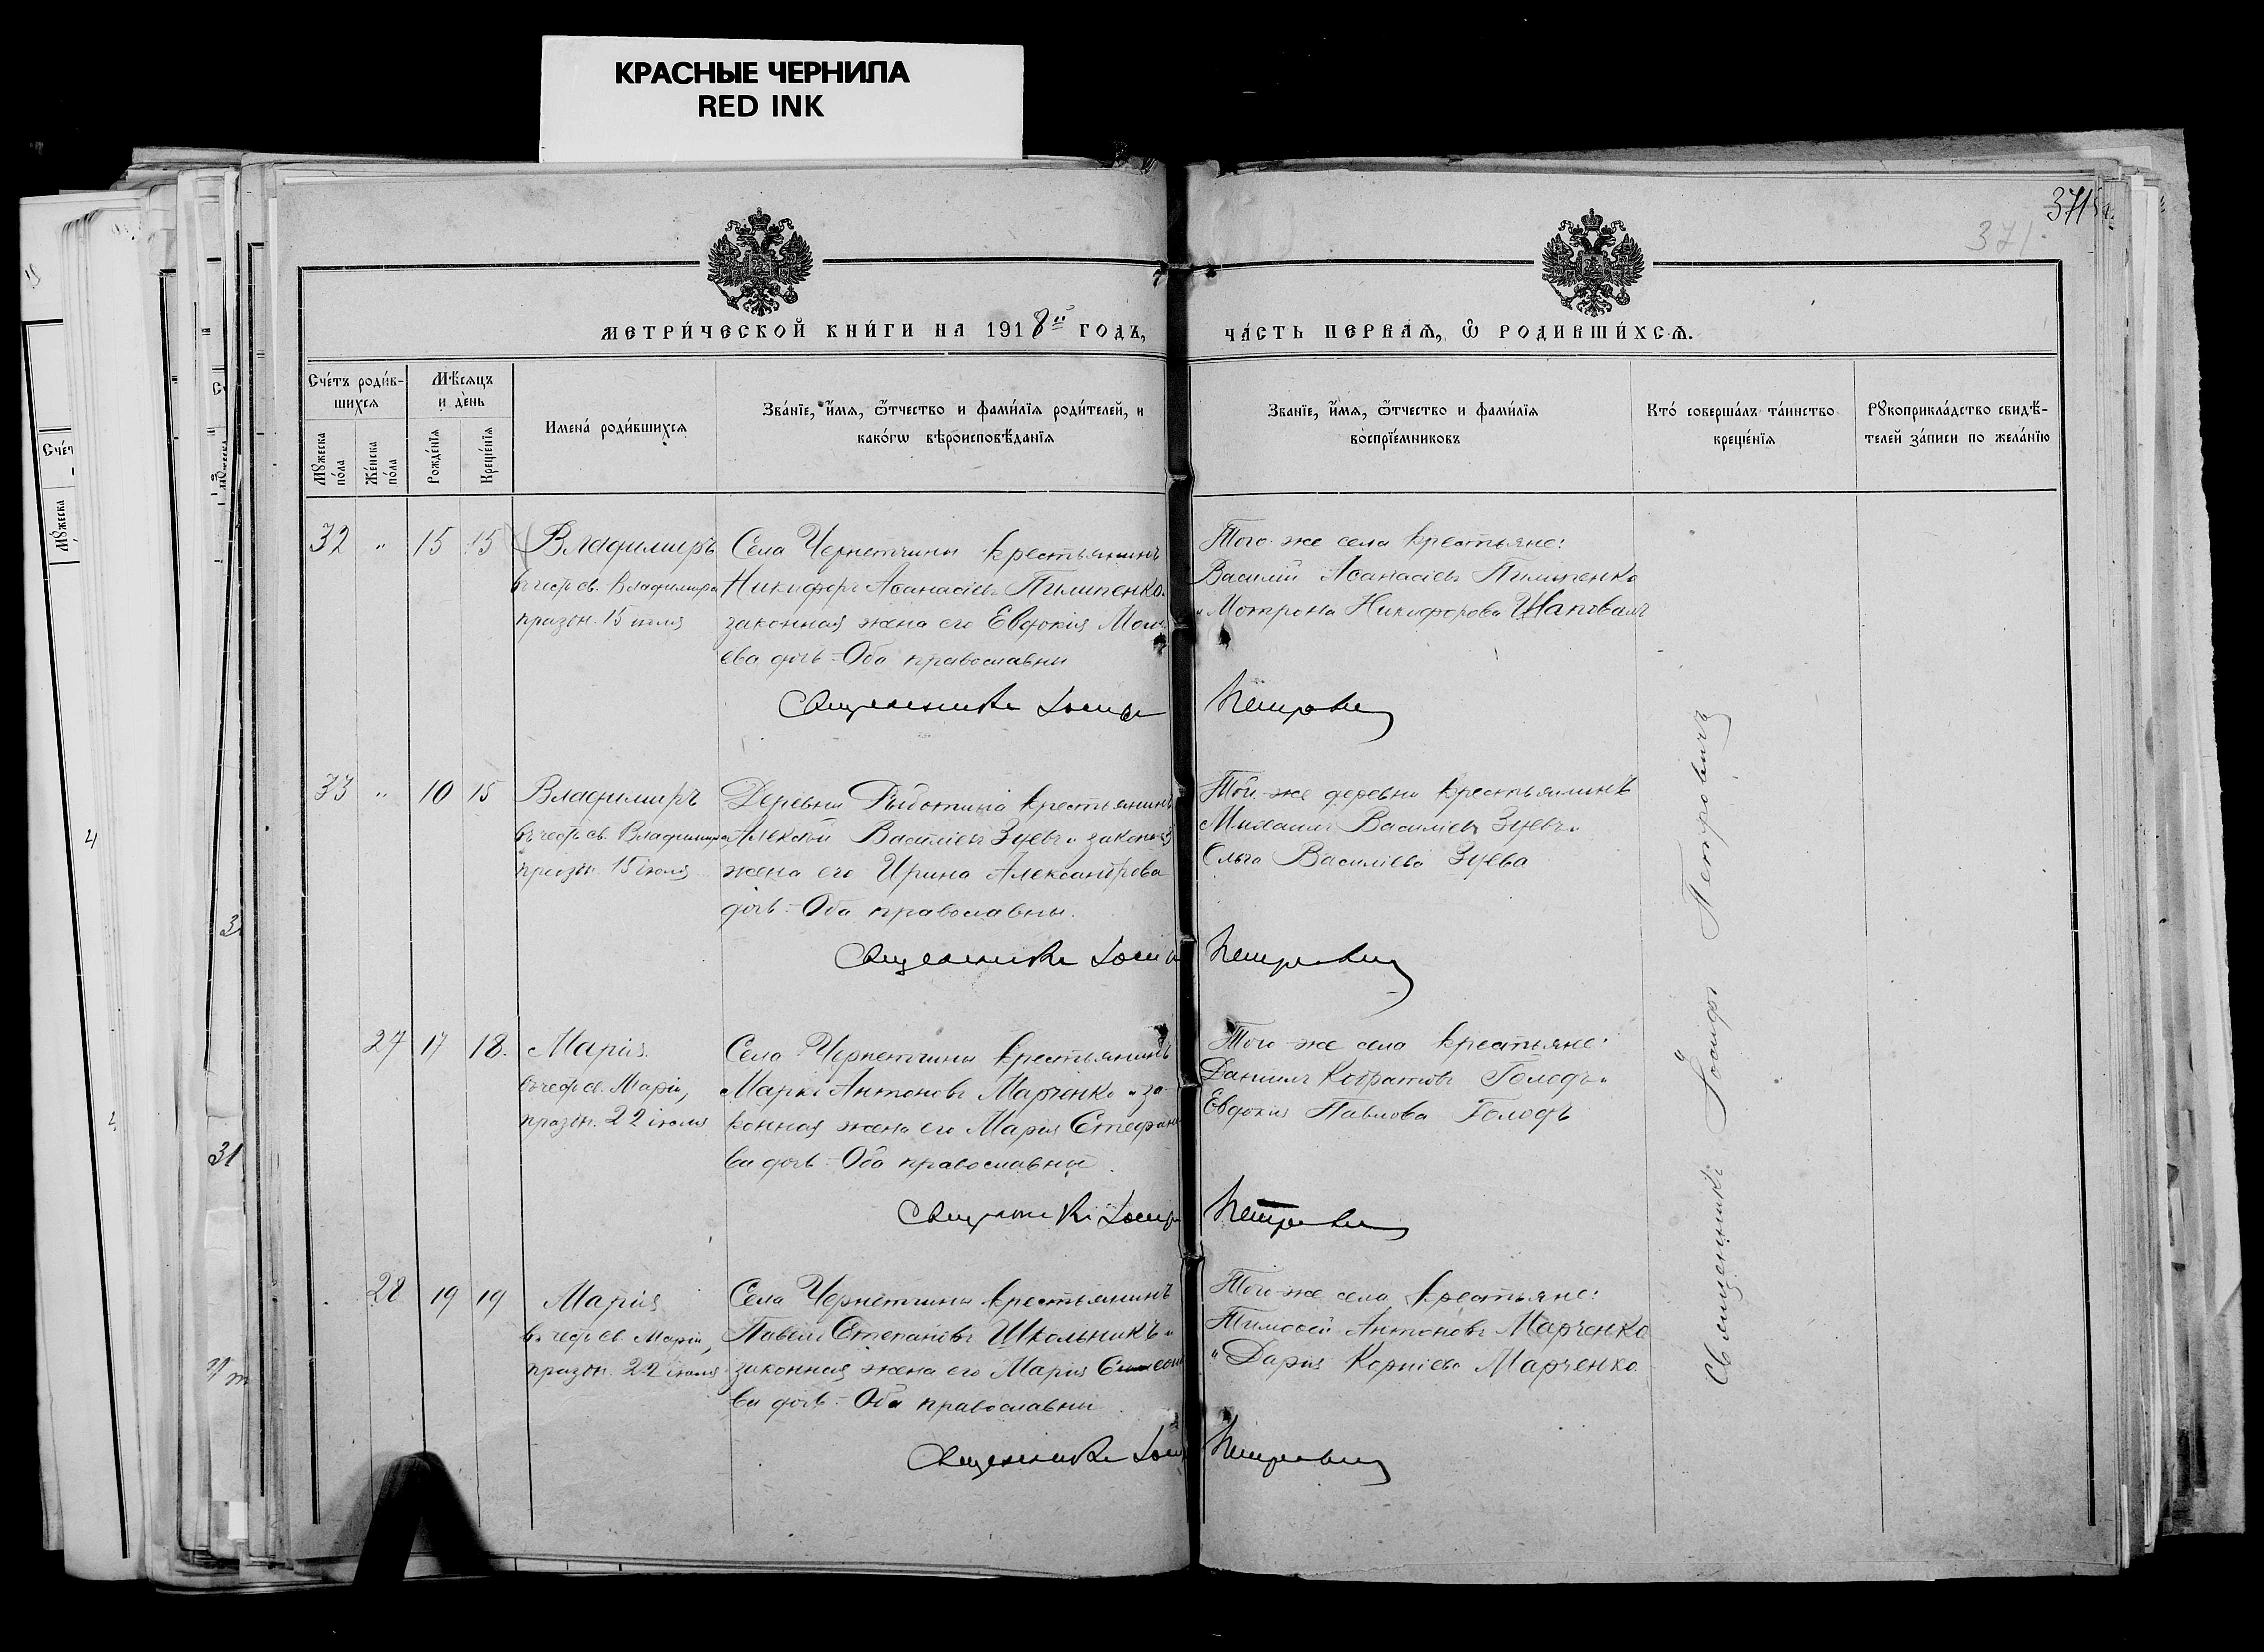 КРАСНЫЕ ЧЕРНИЛА
RED INK
371
371
МЕТРИ́ЧЕСКОЙ КНИ́ГИ НА 1918й ГОДЪ,
ЧА́СТЬ ПЕРВАѦ, Ѿ РОДИВШИ́ХСѦ.
Сче́тъ роди́в-
шихсѧ
Мꙋ́жеска по́ла
Же́нска по́ла
Мѣ́сѧцъ
и де́нь
Рожде́нїѧ
Креще́нїѧ
Имена́ роди́вшихсѧ
Зва́нїе, и́мѧ, ѻ҆́тчество и фами́лїѧ роди́телей, и
како́гѡ вѣроисповѣ́данїѧ
Зва́нїе, и́мѧ, ѻ҆́тчество и фами́лїѧ
воспрїе́мниковъ
Кто́ соверша́лъ та́инство
креще́нїѧ
Рꙋкоприкла́дство свидѣ́-
телей за́писи по жела́нїю
32 " 15 15 Владимиръ
въ честь св. Владимира
праздн. 15 июля
Села Чернетчины крестьянинъ
Никифоръ Аѳанасіевъ Пилипенко и
законная жена его Евдокія
ева дочь - Оба православны
Того-же села крестьяне:
Василий Аѳанасіевъ Пилипенко
и Мотрона Никифорова Шаповалъ
Священникъ Іосифъ Петровичъ
33 " 10 15 Владимиръ
въ честь св. Владимира
праздн. 15 іюля
Деревни крестьянинъ
Алексѣй Василіевъ Зуевъ и законная
жена его Ирина Александрова
дочь - Оба православны.
Той-же деревни крестьянинъ
Михаилъ Василіевъ Зуевъ и
Ольга Василіева Зуева
Священникъ Іосифъ Петровичъ
27 17 18. Марія
въ честь св. Маріи,
праздн. 22 іюля
Села Чернетчины крестьянинъ
Маркъ Антоновъ Марченко и за-
конная жена его Марія Стефано
ва дочь - Оба православны
Того-же села крестьяне:
Даніилъ Кодратовъ Голодъ и
Евдокія Павлова Голодъ
Священникъ Іосифъ Петровичъ
28 19 19 Марія
въ честь св. Маріи,
праздн. 22 іюля
Села Чернетчины крестьянинъ
Павелъ Степановъ Школьникъ и
законная жена его Марія Симеоно
ва дочь - Оба православны
Того-же села крестьяне:
Тимоѳей Антоновъ Марченко
и Дарія Корніева Марченко
Священникъ Іосифъ Петровичъ
Священникъ Іосифъ Петровичъ